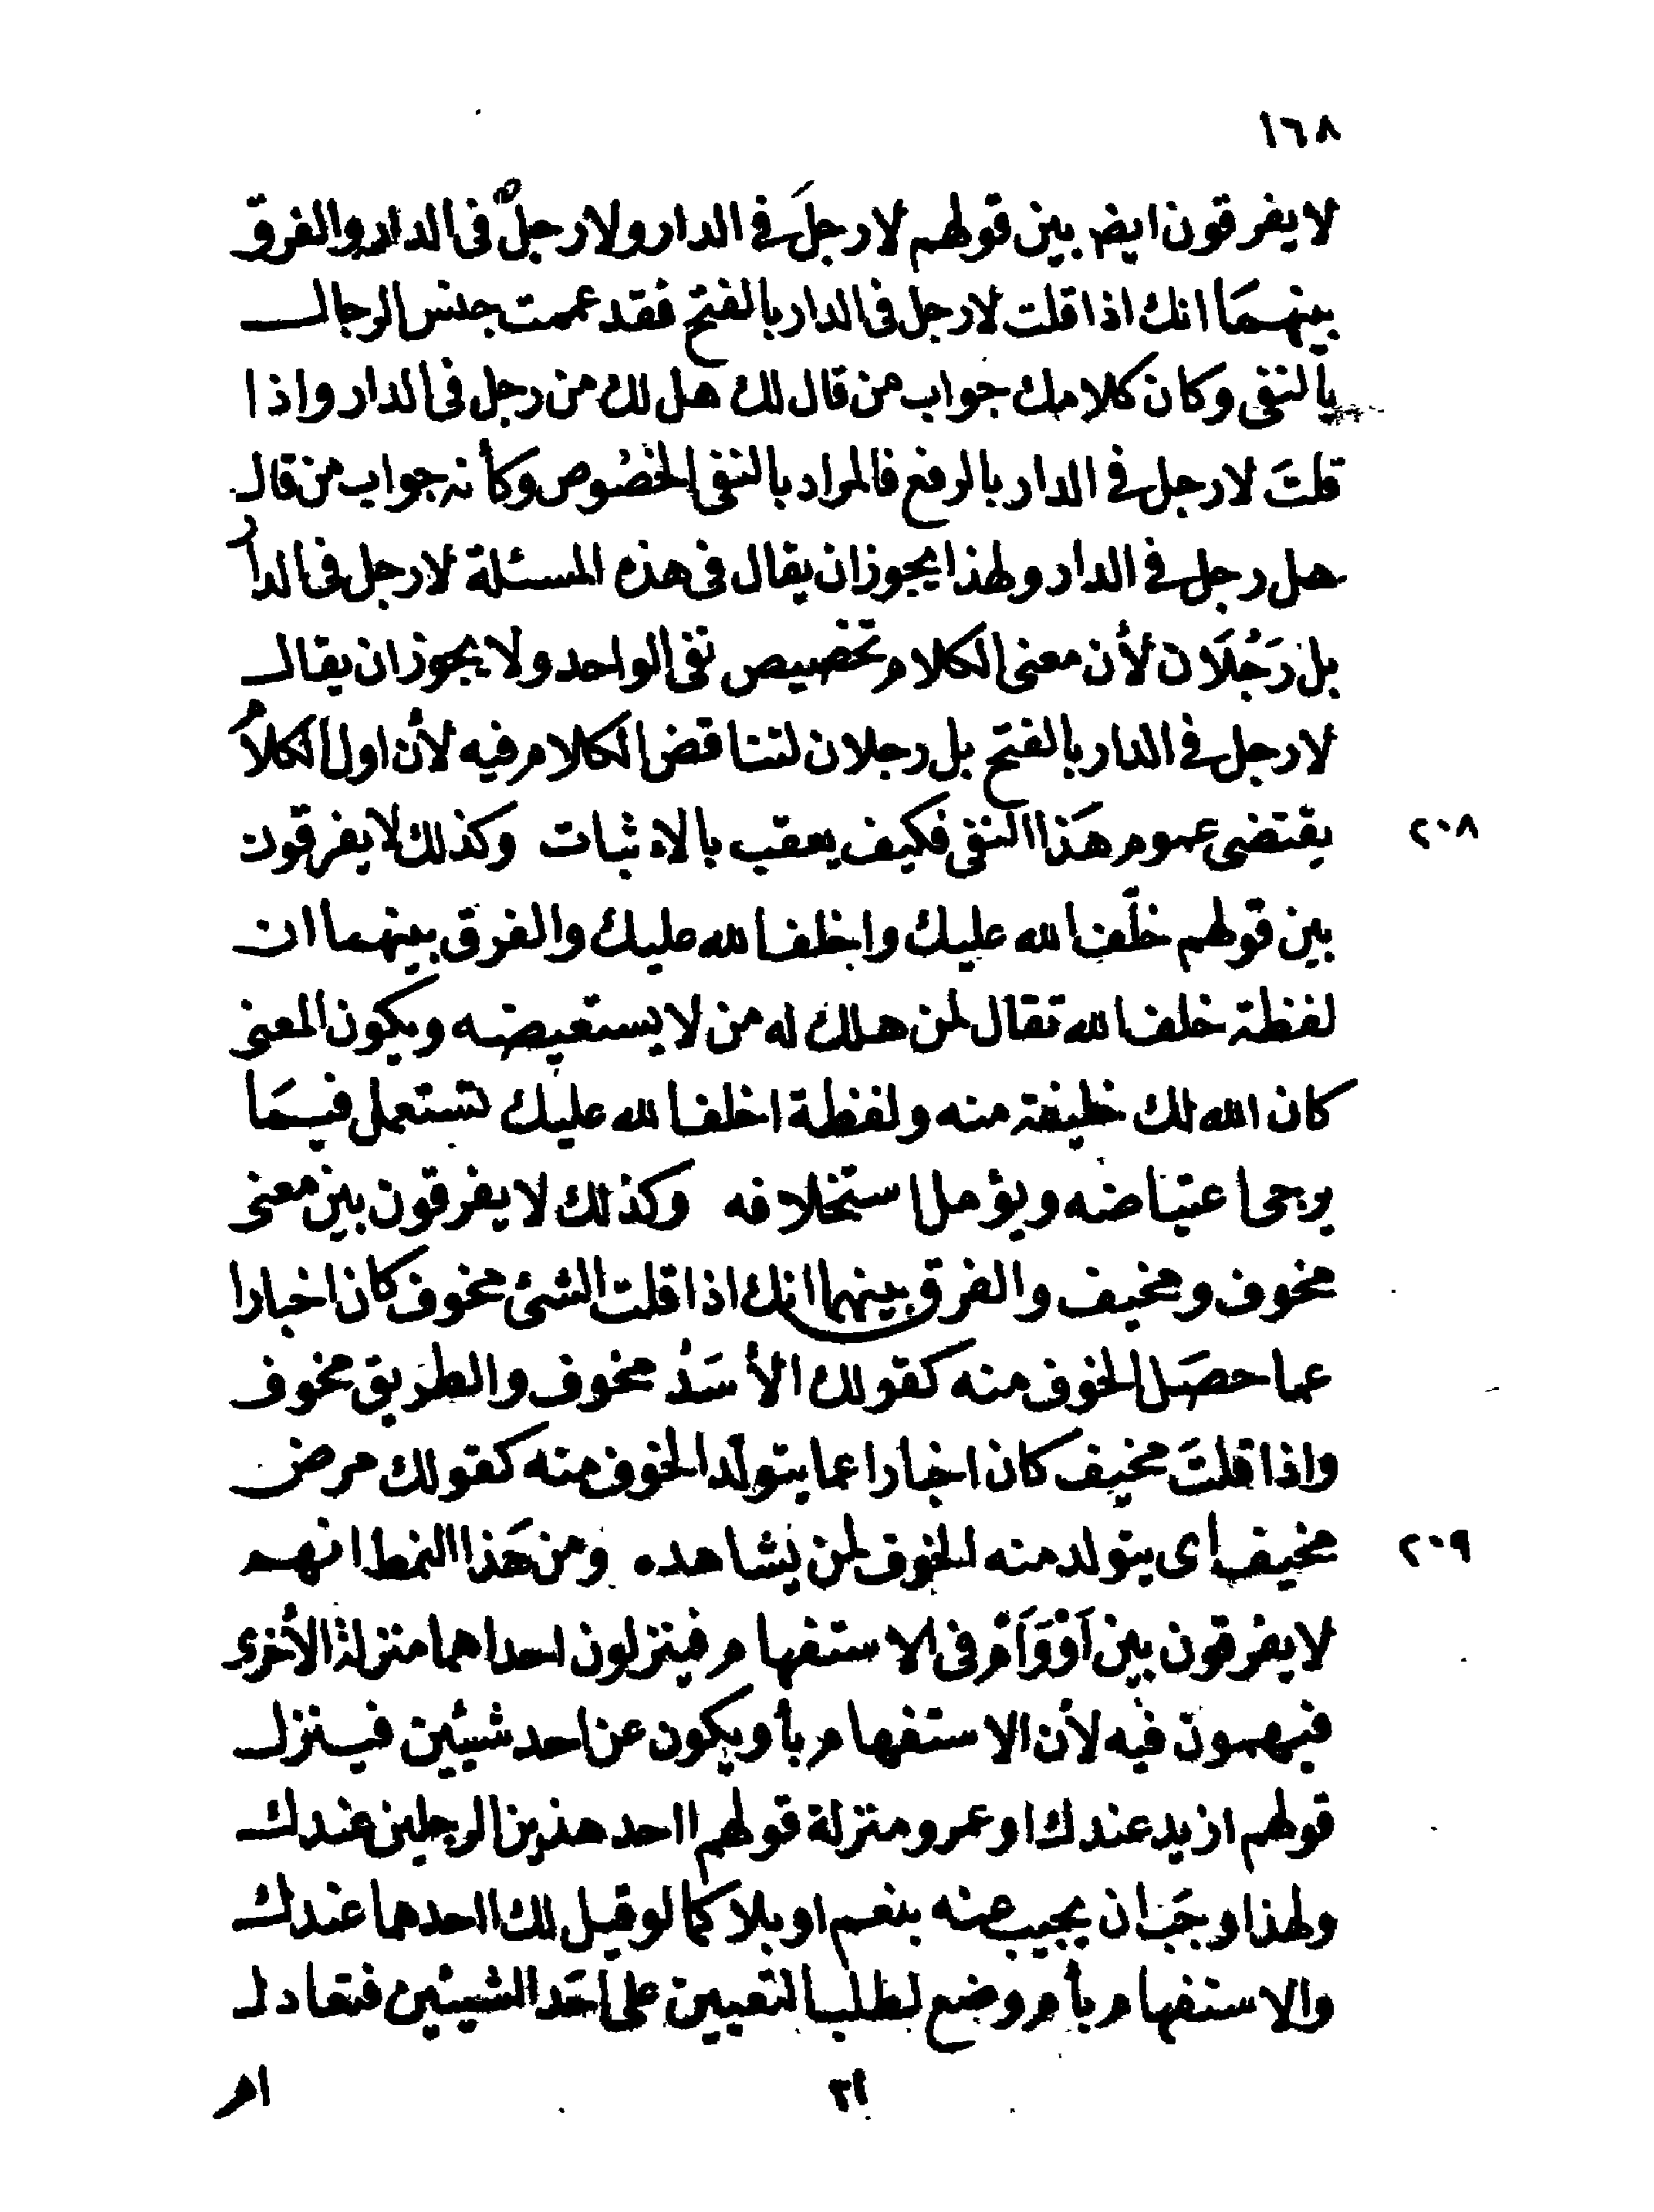 ١٦٨
لا يفرقون ايض بين قولهم لا رجلَ فى الدار ولا رجلٌ فى الدار والفرق
بينهمَا انك اذا قلت لا رجل فى الدار بالفتح فقد عممت جنس الرجال
بالنفى وكان كلامك جواب من قال لك هل لك من رجل فى الدار واذا
قلتَ لا رجل فى الدار بالرفع فالمراد بالنفى الخصُوص وكأنه جواب من قال
هل رجل فى الدار ولهذا يجوز ان يقال فى هذه المسئلة لا رجل فى الدار
بل رَجُلَان لأن معنى الكلام تخصيص نفى الواحد ولا يجوز ان يقال
لا رجل فى الدار بالفتح بل رجلان لتناقض الكلام فيه لأن اول الكلام
٢٠٨
يقتضى عموم هَذا النفى فكيف يعقب بالاثبات وكذلك لا يفرقون
بين قولهم خلَف الله عليك واخلف الله عليك والفرق بينهما ان
لفظة خلف الله تقال لمن هلك له من لا يستعيضه ويكون المعنى
كان الله لك خليفة منه ولفظة اخلف الله عليك تستعمل فيمَا
يرجى اعتياضه ويؤمل استخلافه وكذلك لا يفرقون بين معنى
مخوف ومخيف والفرق بينهما انك اذا قلت الشئ مخوف كان اخبارا
عما حصَل الخوف منه كقولك الأسَدُ مخوف والطريق مخوف
واذا قلتَ مخيف كان اخبارا عما يتولّد الخوف منه كقولك مرض
٢٠٩
مخيف أى يتولد منه الخوف لمن يشاهده ومن هَذا النمط انهم
لا يفرقون بين اَوْ وَاَمْ فى الاستفهام فينزلون احداهما منزلة الأخرى
فيهمون فيه لأن الاستفهام بأو يكون عن احد شيئين فينزل
قولهم ازيد عندك او عمرو منزلة قولهم ااحد هذين الرجلين عندك
ولهذا وجَب ان يجيب عنه بنعم او بلا كما لو قيل لك ااحدهما عندك
والاستفهام بأم وضع لطلب التعيين على احَد الشيئين فتعادل
٢١
ام